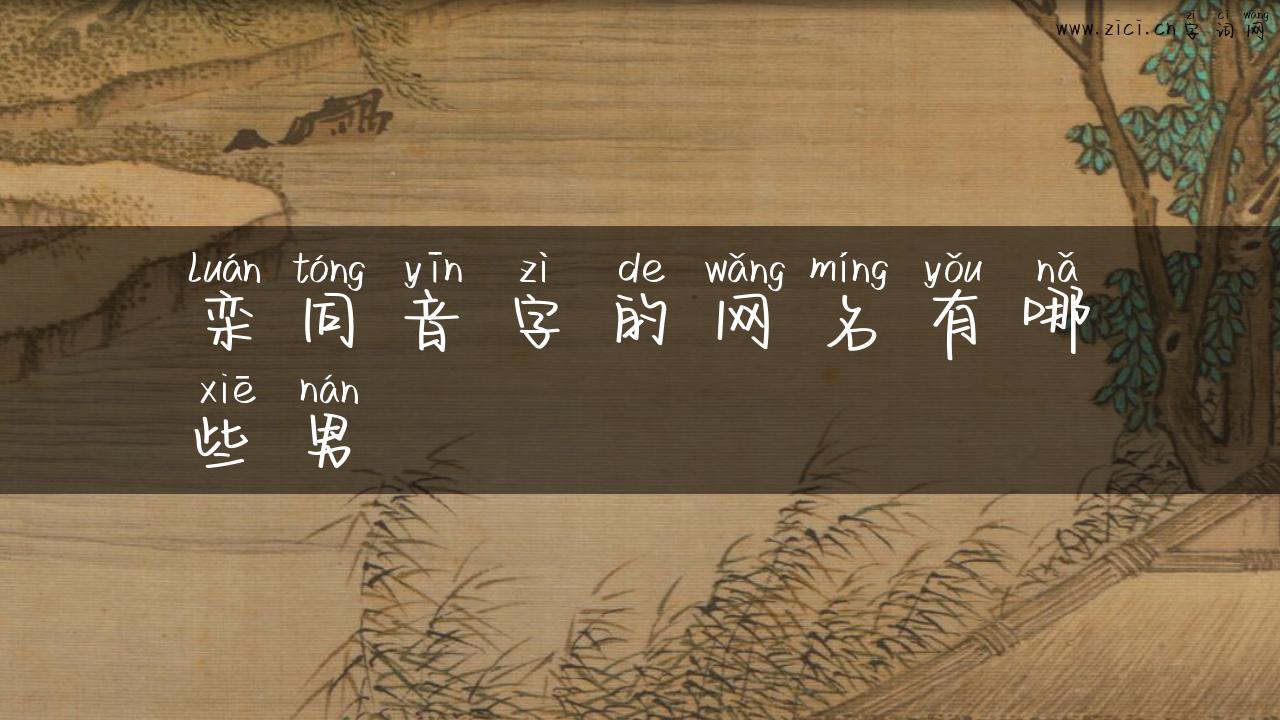 zì cí wǎng
www.zici.cn字词网
luán tóng yīn zì de wǎng míng yǒu nǎ
栾同音字的网名有哪
xiē nán
些男